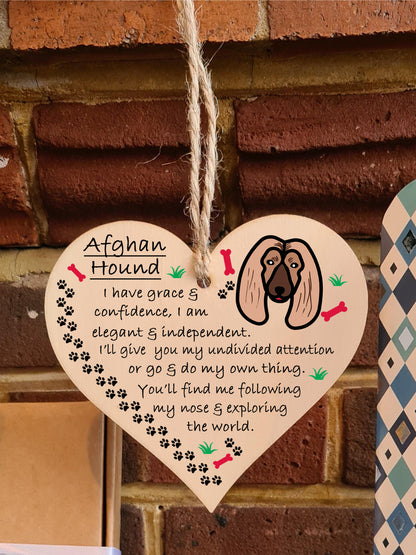 Afghan
Hound
I have grace &
confidence, I am
elegant & independent.
I'll give you my undivided attention
or go & do my own thing.
You'll find me following
my nose & exploring
the world.